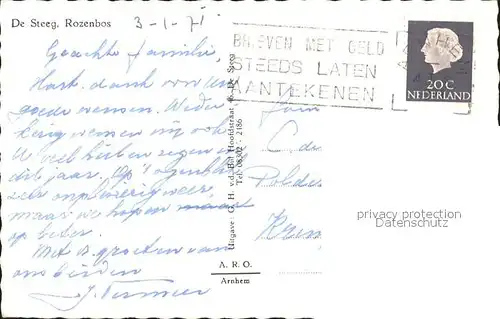 De Steeg, Rozenbos
3-1-71
BRIEVEN MET GELD
STEEDS LATEN
AANTEKENEN
ARNHEM
20 C
NEDERLAND
Geachte familie,
Hart. dank voor uw
goede wensen. Weder
kerig wensen wij ook
U veel heil en zegen in
dit jaar. Op 't ogenblik
zeer onplezierig weer,
maar we hopen maar
op beter.
Met de groeten van
ons beiden
J. Vermeer
Fam
C. de
Polder
Uitgave: G. H. v.d. Bol Hoofdstraat De Steeg
Tel. 08302 - 2186
A. R. O.
Arnhem
privacy protection
Datenschutz